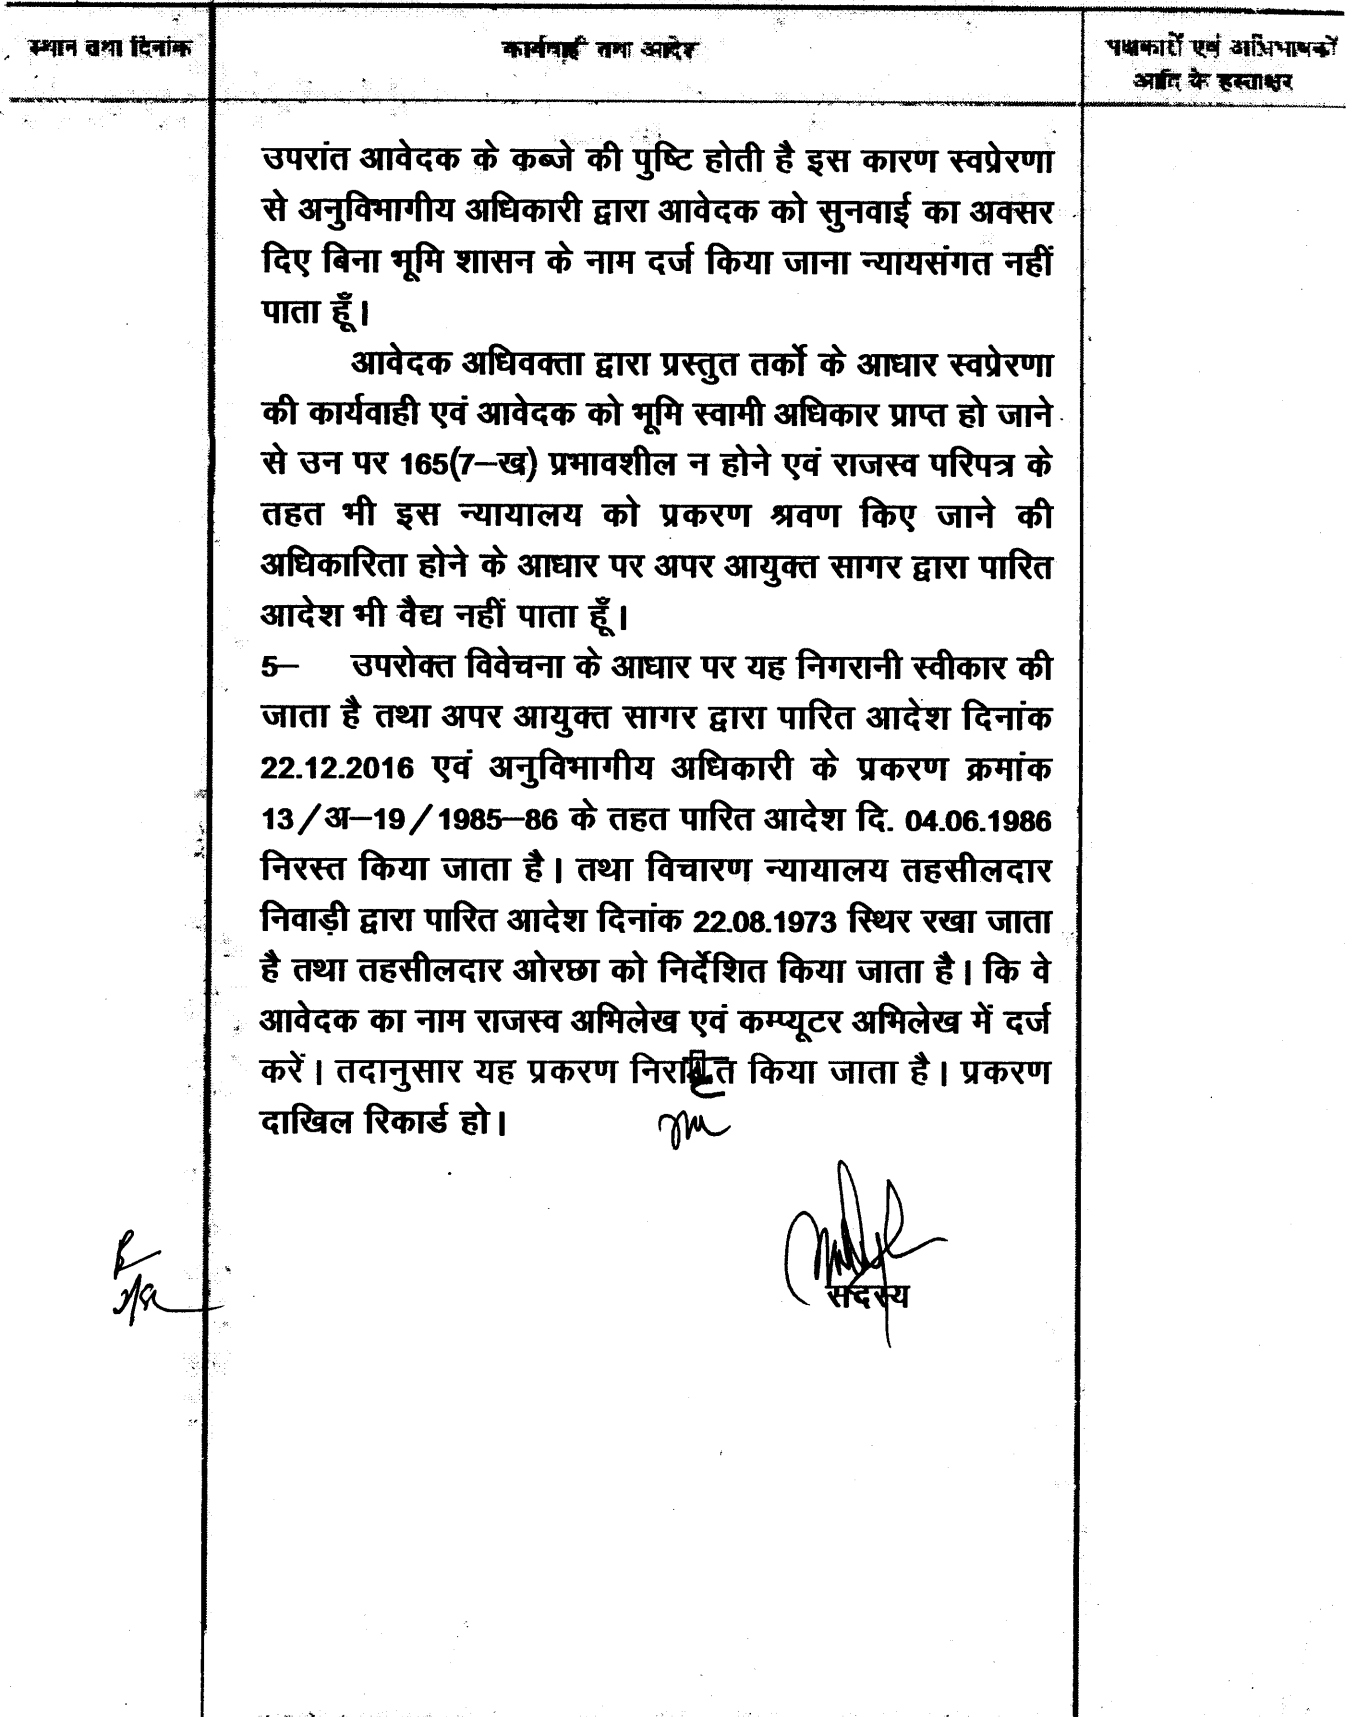 स्थान तथा दिनांक
कार्यवाही तथा आदेश
पक्षकारों एवं अभिभाषकों
आदि के हस्ताक्षर
उपरांत आवेदक के कब्जे की पुष्टि होती है इस कारण स्वप्रेरणा
से अनुविभागीय अधिकारी द्वारा आवेदक को सुनवाई का अवसर
दिए बिना भूमि शासन के नाम दर्ज किया जाना न्यायसंगत नहीं
पाता हूँ।
आवेदक अधिवक्ता द्वारा प्रस्तुत तर्को के आधार स्वप्रेरणा
की कार्यवाही एवं आवेदक को भूमि स्वामी अधिकार प्राप्त हो जाने
से उन पर 165(7–ख) प्रभावशील न होने एवं राजस्व परिपत्र के
तहत भी इस न्यायालय को प्रकरण श्रवण किए जाने की
अधिकारिता होने के आधार पर अपर आयुक्त सागर द्वारा पारित
आदेश भी वैद्य नहीं पाता हूँ।
5– उपरोक्त विवेचना के आधार पर यह निगरानी स्वीकार की
जाता है तथा अपर आयुक्त सागर द्वारा पारित आदेश दिनांक
22.12.2016 एवं अनुविभागीय अधिकारी के प्रकरण क्रमांक
13/अ–19/1985–86 के तहत पारित आदेश दि. 04.06.1986
निरस्त किया जाता है। तथा विचारण न्यायालय तहसीलदार
निवाड़ी द्वारा पारित आदेश दिनांक 22.08.1973 स्थिर रखा जाता
है तथा तहसीलदार ओरछा को निर्देशित किया जाता है। कि वे
आवेदक का नाम राजस्व अभिलेख एवं कम्प्यूटर अभिलेख में दर्ज
करें। तदानुसार यह प्रकरण किया जाता है। प्रकरण
दाखिल रिकार्ड हो।
सदस्य